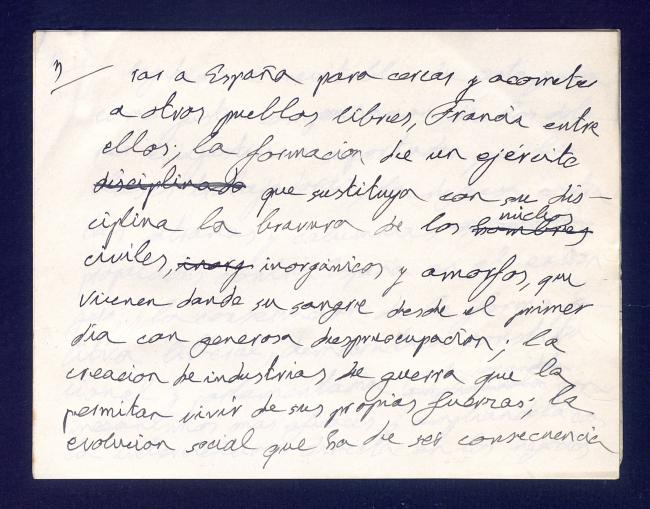 3)
rar a España para cercar y acometer
a otros pueblos libres, Francia entre
ellos; la formación de un ejército
disciplinado que sustituya con su dis-
ciplina la bravura de los hombres nucleos
civiles, inorg inorgánicos y amorfos, que
vienen dando su sangre desde el primer
dia con generosa despreocupación; la
creación de industrias de guerra que la
permitan vivir de sus propias fuerzas; la
evolución social que ha de ser consecuencia